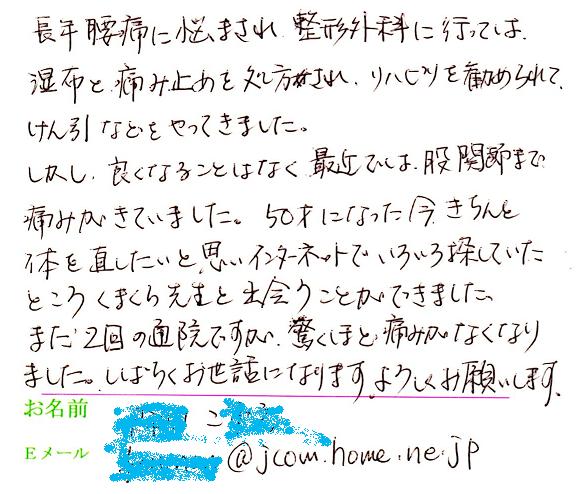 長年腰痛に悩まされ 整形外科に行っては、
湿布と痛み止めを処方され、リハビリを勧められて、
けん引などをやってきました。
しかし、良くなることはなく 最近では、股関節まで
痛みがきていました。50才になった今きちんと
体を直したいと思いインターネットでいろいろ探していた
ところくまくら先生と出会うことができました、
まだ2回の通院ですが、驚くほど痛みがなくなり
ました。しばらくお世話になります。よろしくお願いします。
お名前
Eメール @jcom.home.ne.jp